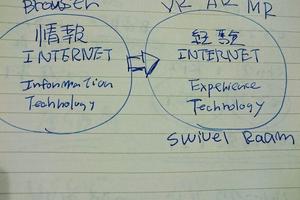 Browser
VR AR MR
情報
INTERNET
Information
Technology
経験
INTERNET
Experience
Technology
Swivel